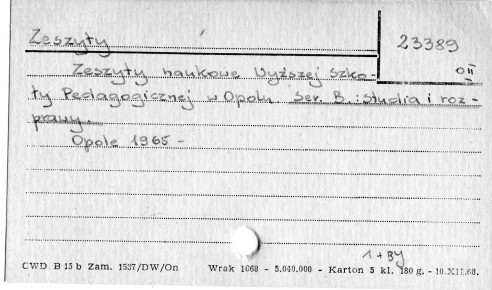 Zeszyty
23389
OII
Zeszyty naukowe Wyższej Szko-
ły Pedagogicznej w Opolu Ser. B.: Studia i roz-
prawy.
Opole 1965 -
1 + BY
CWD B 15 b Zam. 1537/DW/On Wrak 1068 - 5.040.000 - Karton 5 kl. 180 g. - 10.XII.68.